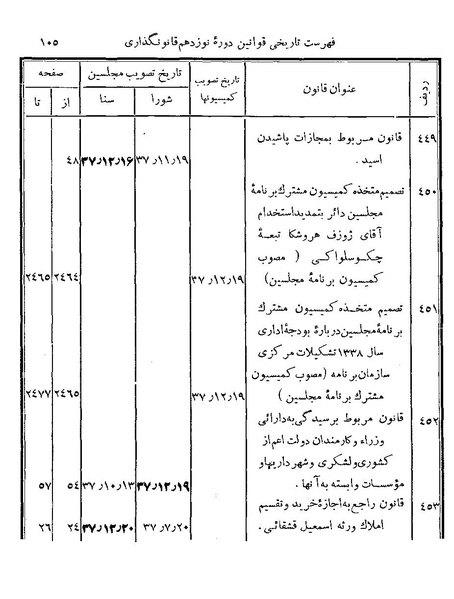 فهرست تاریخی قوانین دورهٔ نوزدهم قانونگذاری ۱۰۵
ردیف عنوان قانون تاریخ تصویب کمیسیونها تاریخ تصویب مجلسین صفحه
شورا سنا از تا
۴۴۹ قانون مربوط بمجازات پاشیدن
اسید . ۳۷٫۱۱٫۱۹ ۳۷٫۱۲٫۱۶ ۴۸
۴۵۰ تصمیم متخذه کمیسیون مشترك برنامهٔ
مجلسین دائر بتمدید استخدام
آقای ژوزف هروشکا تبعهٔ
چکوسلواکی ( مصوب
کمیسیون برنامهٔ مجلسین) ۳۷٫۱۲٫۱۹ ۲۴۶۴ ۲۴۶۵
۴۵۱ تصمیم متخذه کمیسیون مشترك
برنامهٔ مجلسین دربارهٔ بودجهٔ اداری
سال ۱۳۳۸ تشکیلات مرکزی
سازمان برنامه (مصوب کمیسیون
مشترك برنامهٔ مجلسین ) ۳۷٫۱۲٫۱۹ ۲۴۶۵ ۲۴۷۷
۴۵۲ قانون مربوط برسیدگی به دارائی
وزراء و کارمندان دولت اعم از
کشوری و لشکری و شهرداریها و
مؤسسات وابسته به آنها . ۳۷٫۱۲٫۱۹ ۳۷٫۱۰٫۱۳ ۵۴ ۵۷
۴۵۳ قانون راجع به اجازهٔ خرید و تقسیم
املاك ورثه اسمعیل قشقائی . ۳۷٫۷٫۲۰ ۳۷٫۱۲٫۲۰ ۲۴ ۲۶